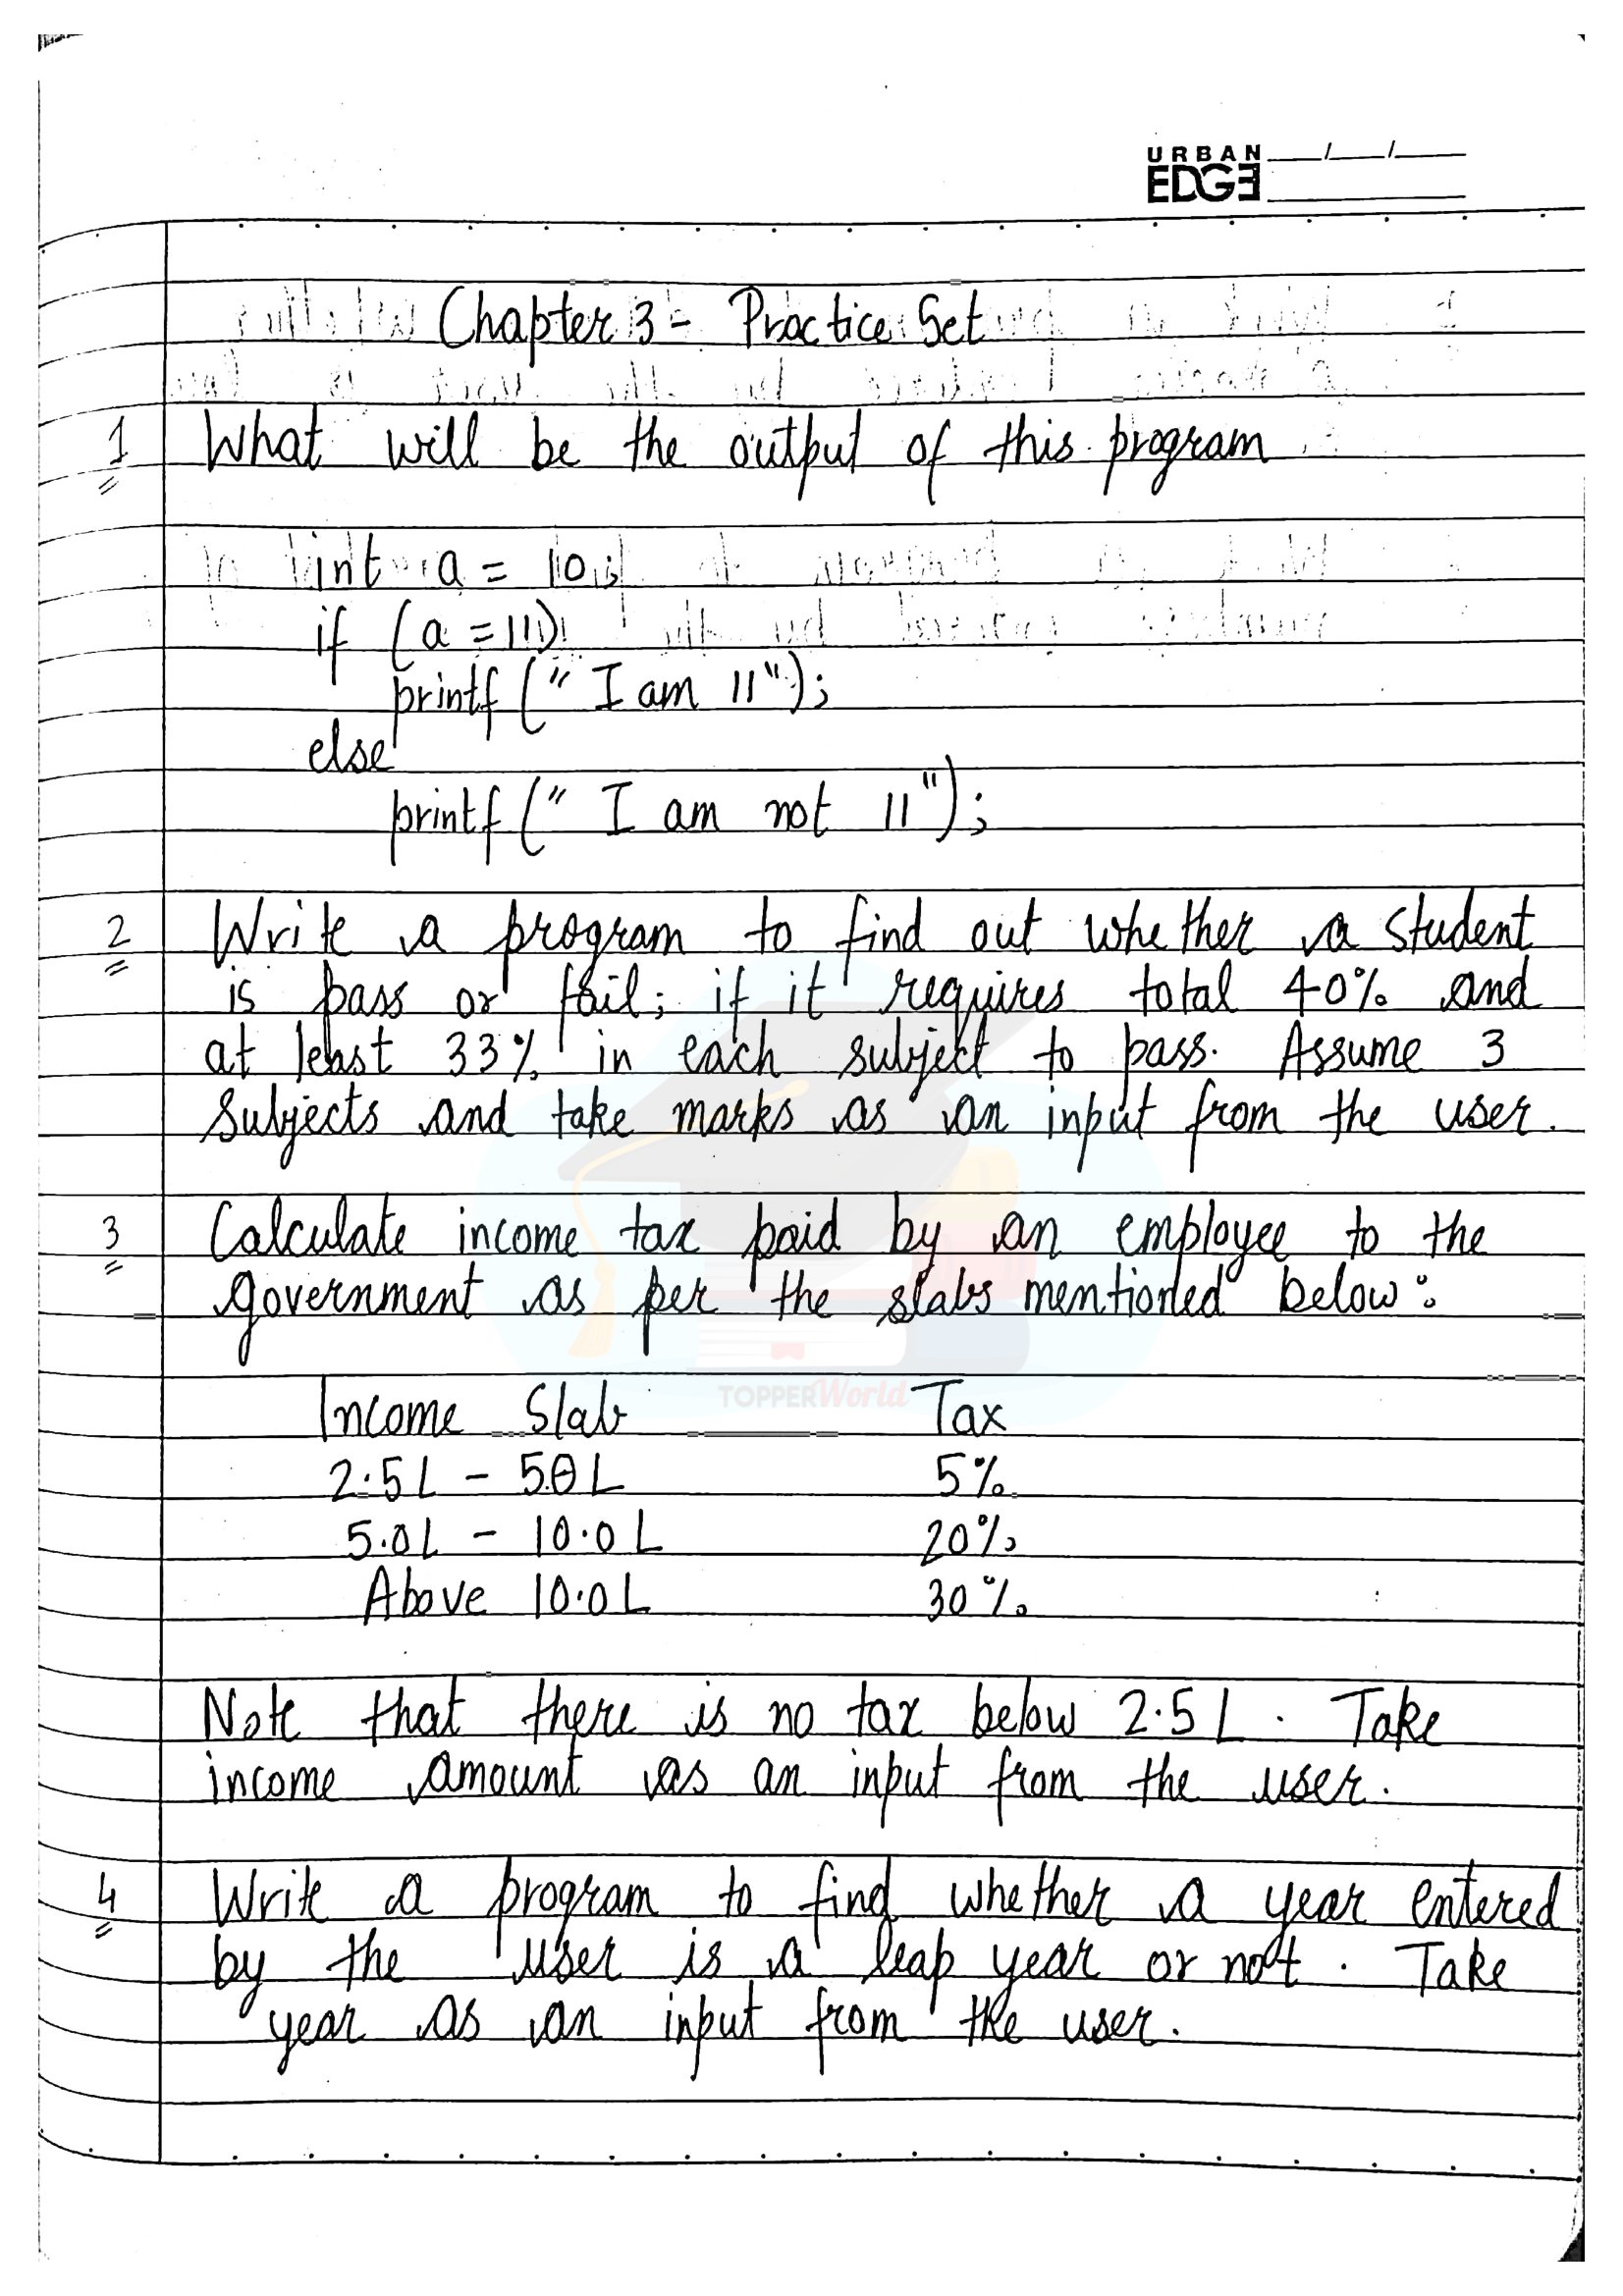 URBAN
EDGE
Chapter 3 - Practice Set
1 What will be the output of this program
int a = 10;
if (a = 11)
printf(" I am 11");
else
printf(" I am not 11");
2 Write a program to find out whether a student
is pass or fail; if it requires total 40% and
at least 33% in each subject to pass. Assume 3
subjects and take marks as an input from the user.
3 Calculate income tax paid by an employee to the
government as per the slabs mentioned below:
TOPPERWorld
Income Slab Tax
2.5L - 5.0L 5%
5.0L - 10.0L 20%
Above 10.0L 30%
Note that there is no tax below 2.5L. Take
income amount as an input from the user.
4 Write a program to find whether a year entered
by the user is a leap year or not. Take
year as an input from the user.